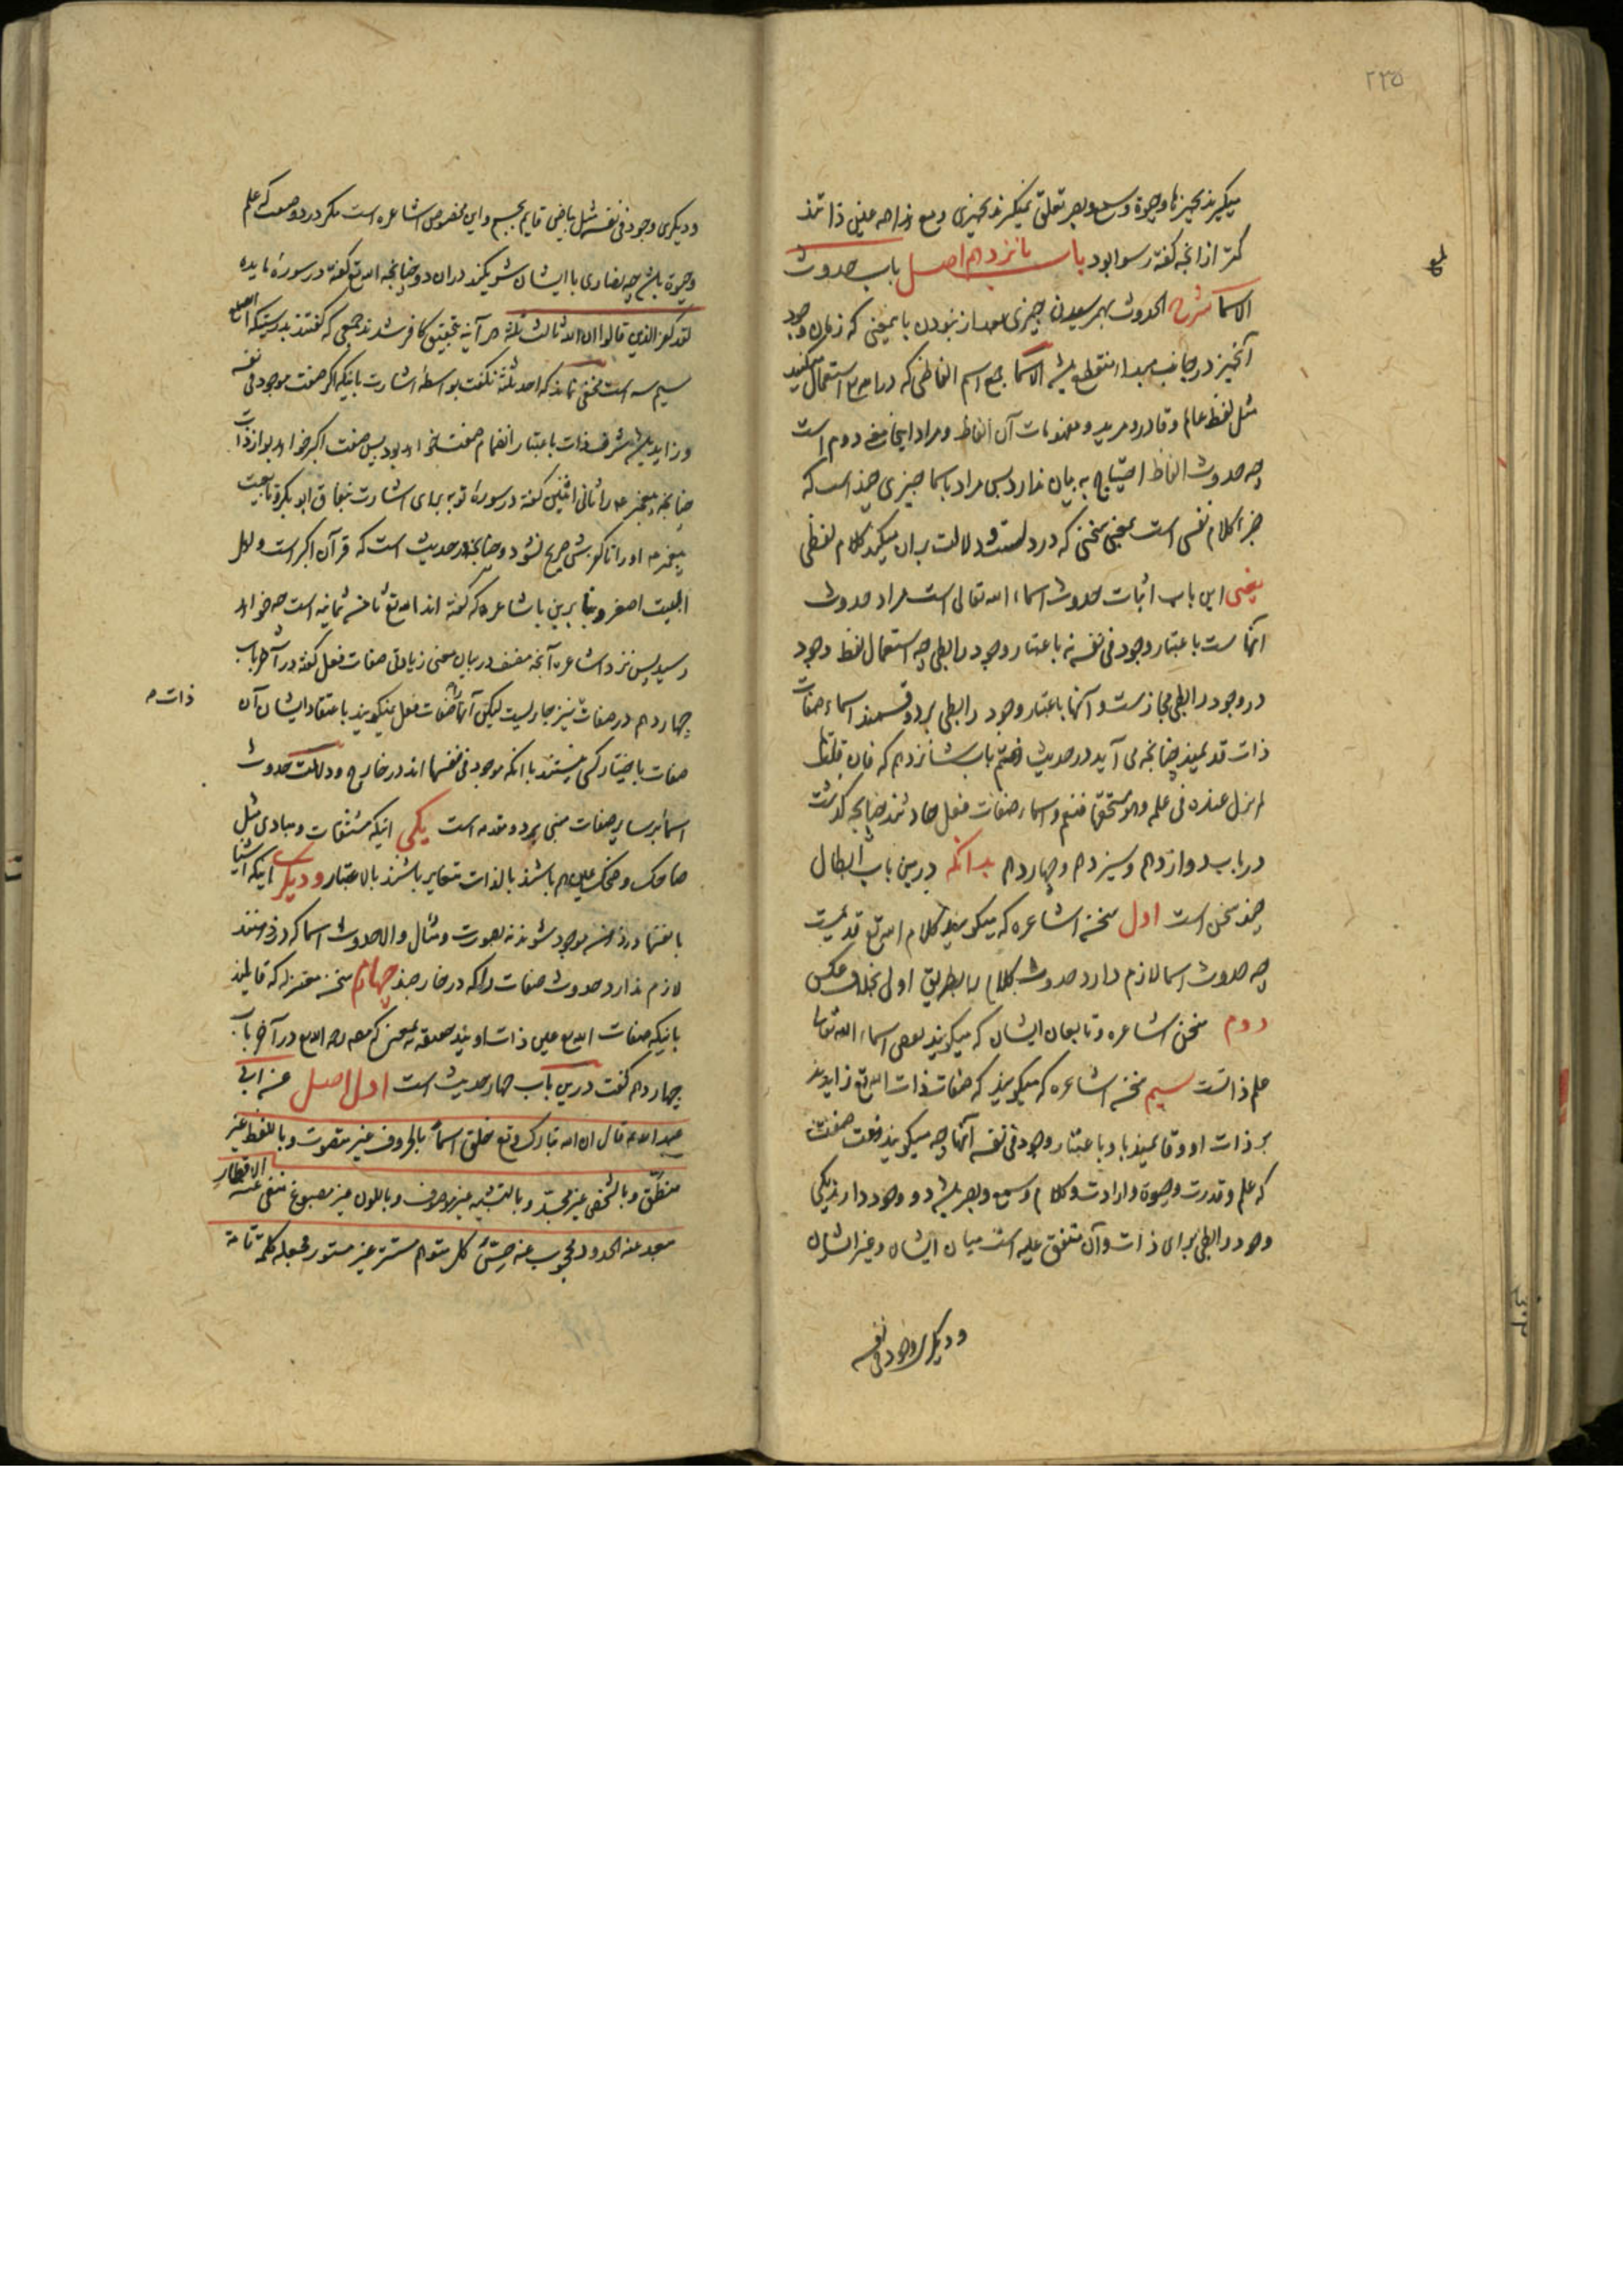 ۲۳۵
میکیرند بچیزها وحیوة وسمع وبصر تعلق نمیکیرند بچیزی ومع هذا همه عین ذاتند
کمتر از آنچه کفته رسوا بود باب پانزدهم اصل باب حدوث
الاسما شرح الحدوث بهم رسیدن چیزی بعد از نبودن بایمعنی که زمان وجود
آنچیز در جانب مبدا منقطع باشد الاسما جمع اسم الفاظی که در استعمال میکنند
مثل لفظ عالم وقادر ومرید ومفهومات آن الفاظ ومراد اینجا معنی دوم است
چه حدوث الفاظ احتیاج به بیان ندارد پس مراد باسما چیزی چند است که
جزء کلام نفسی است بمعنی سخنی که در دلست ودلالت بران میکند کلام لفظی
یعنی این باب اثبات حدوث اسماء الله تعالی است مراد حدوث
آنهاست باعتبار وجود فی نفسه نه باعتبار وجود رابطی چه استعمال لفظ وجود
در وجود رابطی مجاز است وآنها باعتبار وجود رابطی بر دو قسمند اسماء صفات
ذات قدیمند چنانچه می آید در حدیث هفتم باب شانزدهم که فان قلت
لم یزل عنده فی علمه وهو مستحقها فنعم واسماء صفات فعل حادثند چنانچه کذشت
در باب دوازدهم وسیزدهم وچهاردهم بدانکه درین باب ابطال
چند سخن است اول سخن اشاعره که میکویند کلام الله تع قدیمست
چه حدوث اسما لازم دارد حدوث کلام را بطریق اولی بخلاف عکس
دوم سخن اشاعره وتابعان ایشان که میکویند بعض اسماء الله تعالی
علم ذاتست سیم سخن اشاعره که میکویند که صفات ذات الله تع زایدند
بر ذات او وقایمند باو باعتبار وجود فی نفسه آنها چه میکویند هفت صفت
که علم وقدرت وحیوة وارادت وکلام وسمع وبصر باشد دو وجود دارند یکی
وجود رابطی برای ذات وآن متفق علیه است میان ایشان وغیر ایشان
ودیکری وجود فی نفسه
ودیکری وجود فی نفسه مثل بیاض قایم بجسم واین مخصوص اشاعره است مکر در دو صفت که علم
وحیوة باشد چه نصاری با ایشان شریکند دران دو چنانچه الله تع کفته در سورهٔ مایده
لقد کفر الذین قالوا ان الله ثالث ثلثة هر آینه بتحقیق کافر شدند جمعی که کفتند بدرستیکه الله تع
سیم سه است مخفی نماند که احد ثلثة نکفت بواسطه اشارت باینکه اکر صفت موجود فی نفسه
وزاید باشد شرف ذات باعتبار انضمام صفت خواهد بود پس صفت اکبر خواهد بود از ذات
چنانچه پیغمبر ص را ثانی اثنین کفته در سورهٔ توبه برای اشارت بنفاق ابوبکر وتابعیت
پیغمبر ص او را تا کفرش صریح نشود وچنانچه در حدیث است که قرآن اکبر است واهل
البیت اصغر وبنا برین باشاعره که کفته اند الله تع تاسع ثمانیه است چه خواهد
رسید پس نزد اشاعره آنچه مصنف در بیان معنی زیادتی صفات فعل کفته در آخر باب
چهاردهم در صفات ذات نیز جاریست لیکن آنها را صفات فعل نمیکویند باعتقاد ایشان آن
صفات باختیار کسی نیستند با آنکه موجود فی نفسها اند در خارج ودلالت حدوث
اسما بر سایر صفات مبنی بر دو مقدمه است یکی اینکه مشتقات ومبادی مثل
ضاحک وضحک عین هم باشند بالذات متغایر باشند بالاعتبار ودیکر اینکه اشیا
بانفسها در ذهن موجود شوند نه بصورت ومثال والا حدوث اسما که در ذهنند
لازم ندارد حدوث صفات را که در خارجند چهارم سخن معتزله که قایلند
باینکه صفات الله تع عین ذات اویند
چهاردهم کفت درین باب چهار حدیث است اول اصل عن ابی
عبد الله ع قال ان الله تبارک وتع خلق اسماً بالحروف غیر متصوت وباللفظ غیر
منطق وبالشخص غیر مجسد وبالتشبیه غیر موصوف وباللون غیر مصبوغ منفی عنه الاقطار
مبعد عنه الحدود محجوب عنه حس کل متوهم مستتر غیر مستور فجعله کلمة تامة